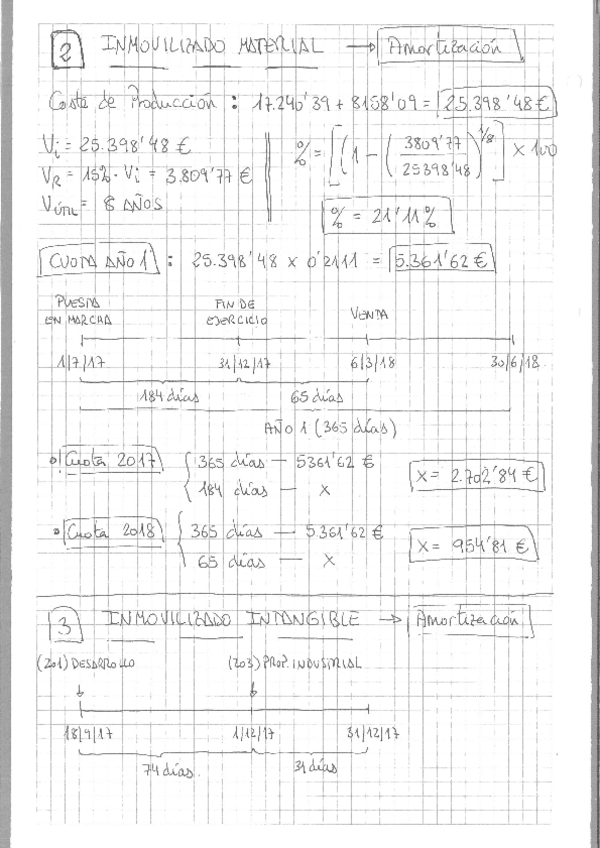 2 INMOVILIZADO MATERIAL → Amortización
Coste de Producción : 17.240'39 + 8158'09 = 25.398'48 €
Vi = 25.398'48 €
VR = 15% · Vi = 3.809'77 €
Vútil = 8 AÑOS
% = [(1 - (3809'77 / 25398'48)^1/8)] x 100
% = 21'11%
CUOTA AÑO 1 : 25.398'48 x 0'2111 = 5.361'62 €
PUESTA EN MARCHA
FIN DE EJERCICIO
VENTA
1/7/17 31/12/17 6/3/18 30/6/18
184 días 65 días
AÑO 1 (365 días)
Cuota 2017 { 365 días — 5361'62 €
184 días — x
x = 2.702'84 €
Cuota 2018 { 365 días — 5.361'62 €
65 días — x
x = 954'81 €
3 INMOVILIZADO INTANGIBLE → Amortización
(201) DESARROLLO (203) PROP. INDUSTRIAL
18/9/17 1/12/17 31/12/17
74 días 31 días